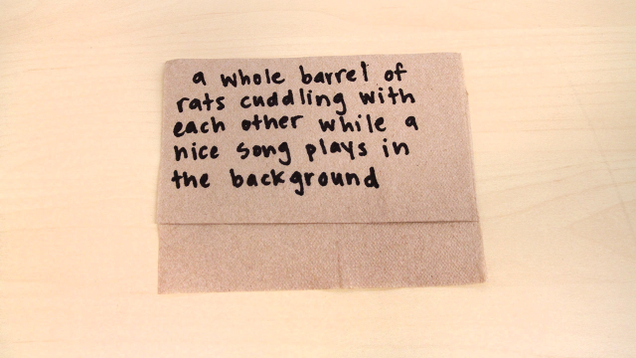 a whole barrel of
rats cuddling with
each other while a
nice song plays in
the background